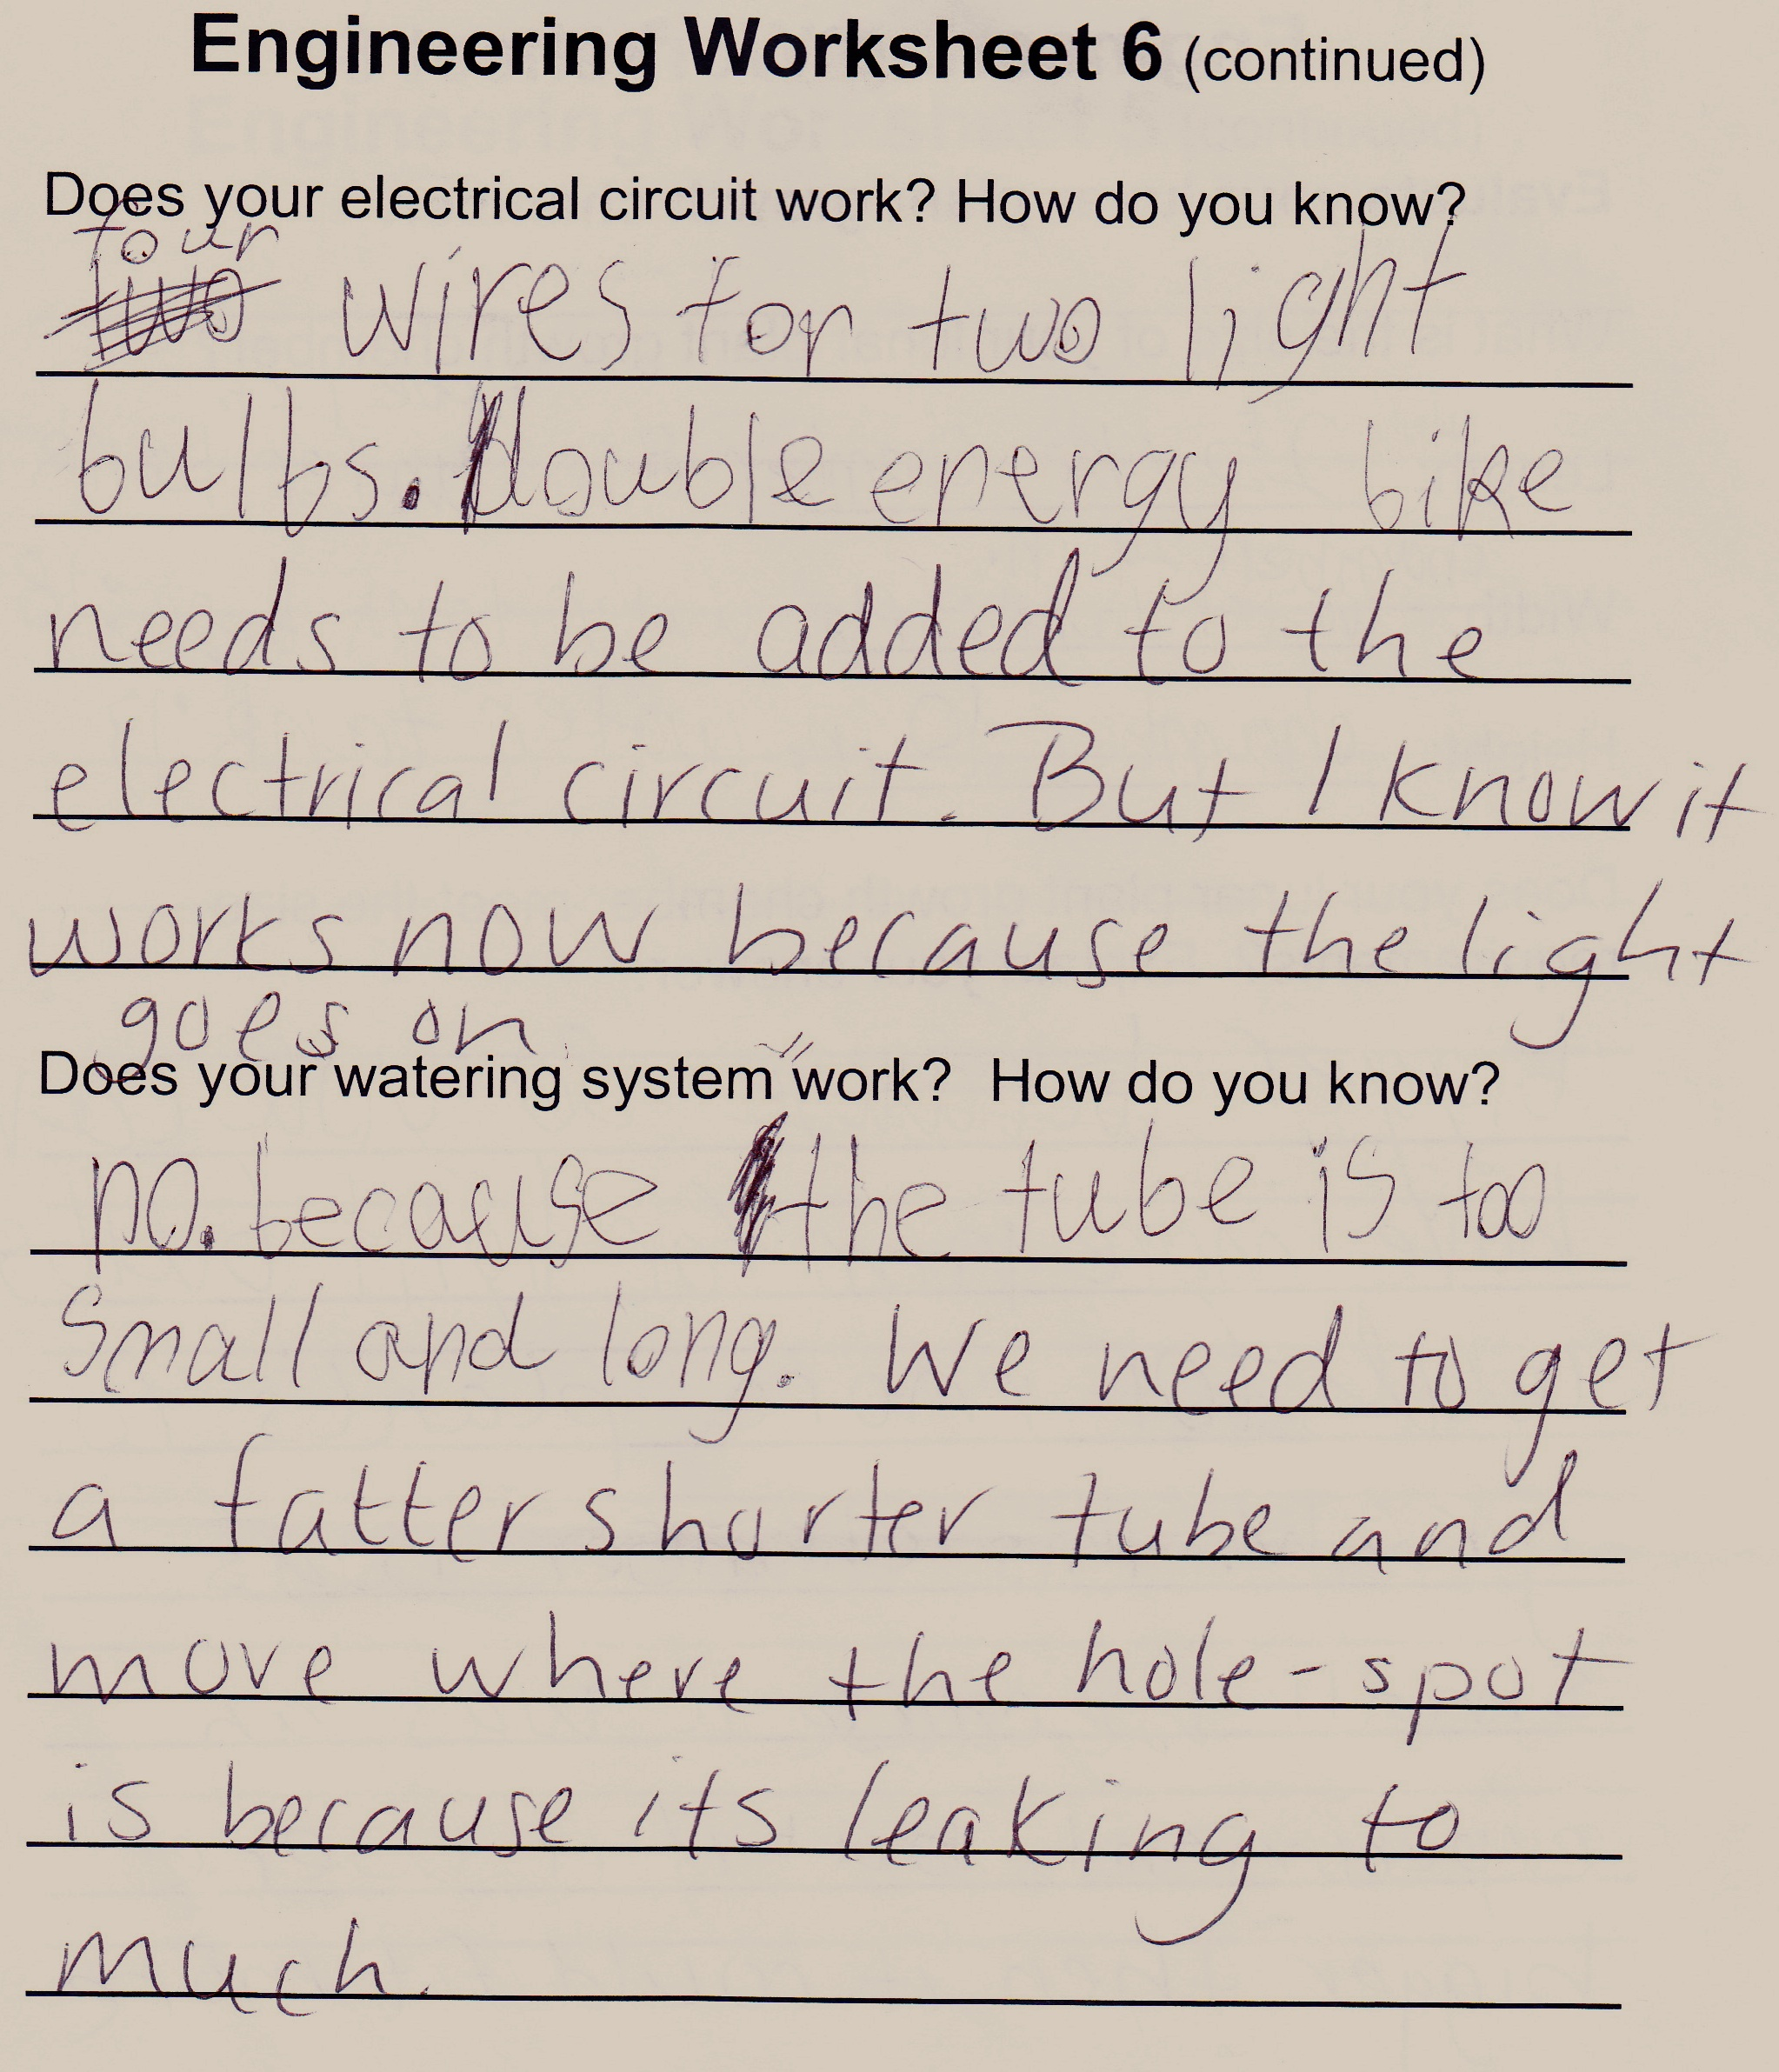 Engineering Worksheet 6 (continued)
Does your electrical circuit work? How do you know?
four
two wires for two light
bulbs. double energy bike
needs to be added to the
electrical circuit. But I know it
works now because the light
goes on
Does your watering system work? How do you know?
no. because the tube is too
small and long. We need to get
a fatter shorter tube and
move where the hole-spot
is because its leaking to
much.